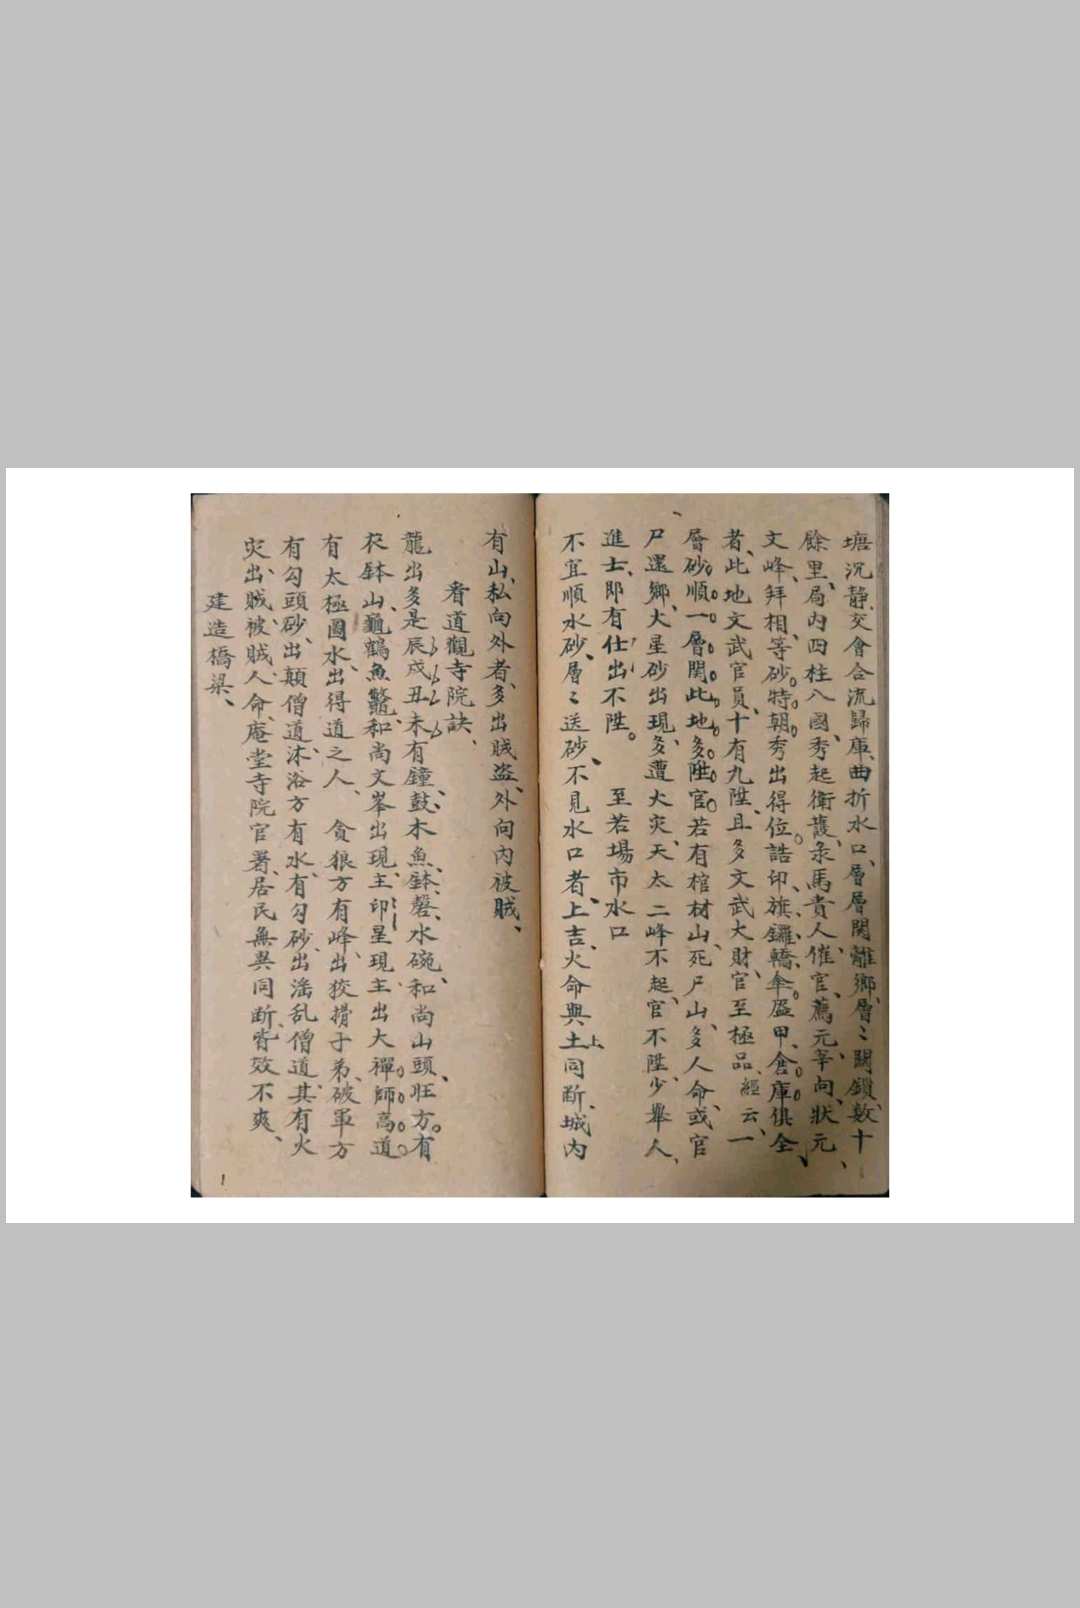 塘沉靜、交會合流歸庫、曲折水口、層層関離鄉、層〻関鎖、数十
餘里、局内四柱八國、秀起衛護、彔馬貴人催官、薦元宰向、狀元、
文峰、拜相、等砂。特朝。秀出得位。誥印、旗鑼、轎傘。盔甲、倉庫俱全、
者、此地文武官員、十有九陞、且多文武大財、官至極品、經云、一
層砂順一層関、此地多陞官、若有棺材山、死尸山、多人命、或官
尸還鄉、火星砂出現、多遭火灾、天太二峰不起、官不陞、少舉人、
進士、即有仕出不陞。 至若場市水口
不宜順水砂、層〻送砂、不見水口者、上吉、火命與土上同断、城内
有山、私向外者、多出賊盗、外向内被賊、
看道觀寺院訣、
龍出多是辰戍丑未有鐘、鼓、木魚、鉢、磬、水碗、和尚山頭、旺方。有
衣鉢山、龜鶴魚鱉、和尚文峯出現、主印星現、主出大禪師高道。
有太極圖水、出得道之人、 貪狼方有峰、出狡揹子弟、破軍方
有勾頭砂、出顛僧道、沐浴方有水、有勾砂、出滛乱僧道、其有火
灾、出賊、被賊、人命、庵堂寺院官署、居民無異同断、皆效不爽、
建造橋梁、